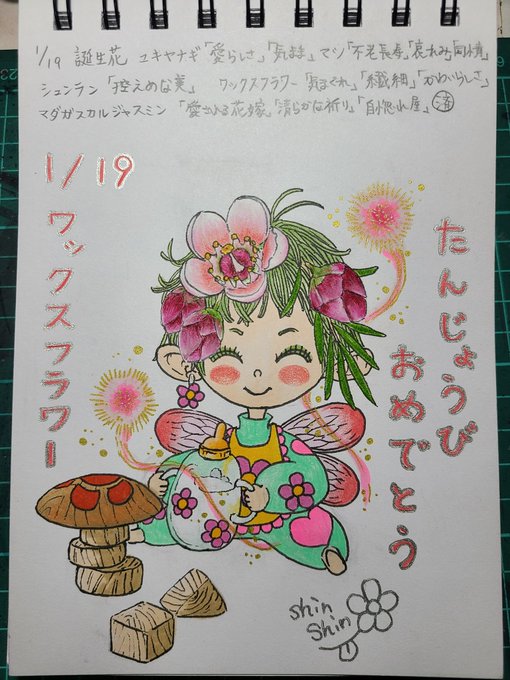 1/19 誕生花 ユキヤナギ「愛らしさ」「気まま」マツ「不老長寿」「哀れみ」「同情」
シュンラン「控えめな美」 ワックスフラワー「気まぐれ」「繊細」「かわいらしさ」
マダガスカルジャスミン「愛される花嫁」「清らかな祈り」「自惚れ屋」済
1/19
ワックスフラワー
たんじょうび
おめでとう
shin
shin